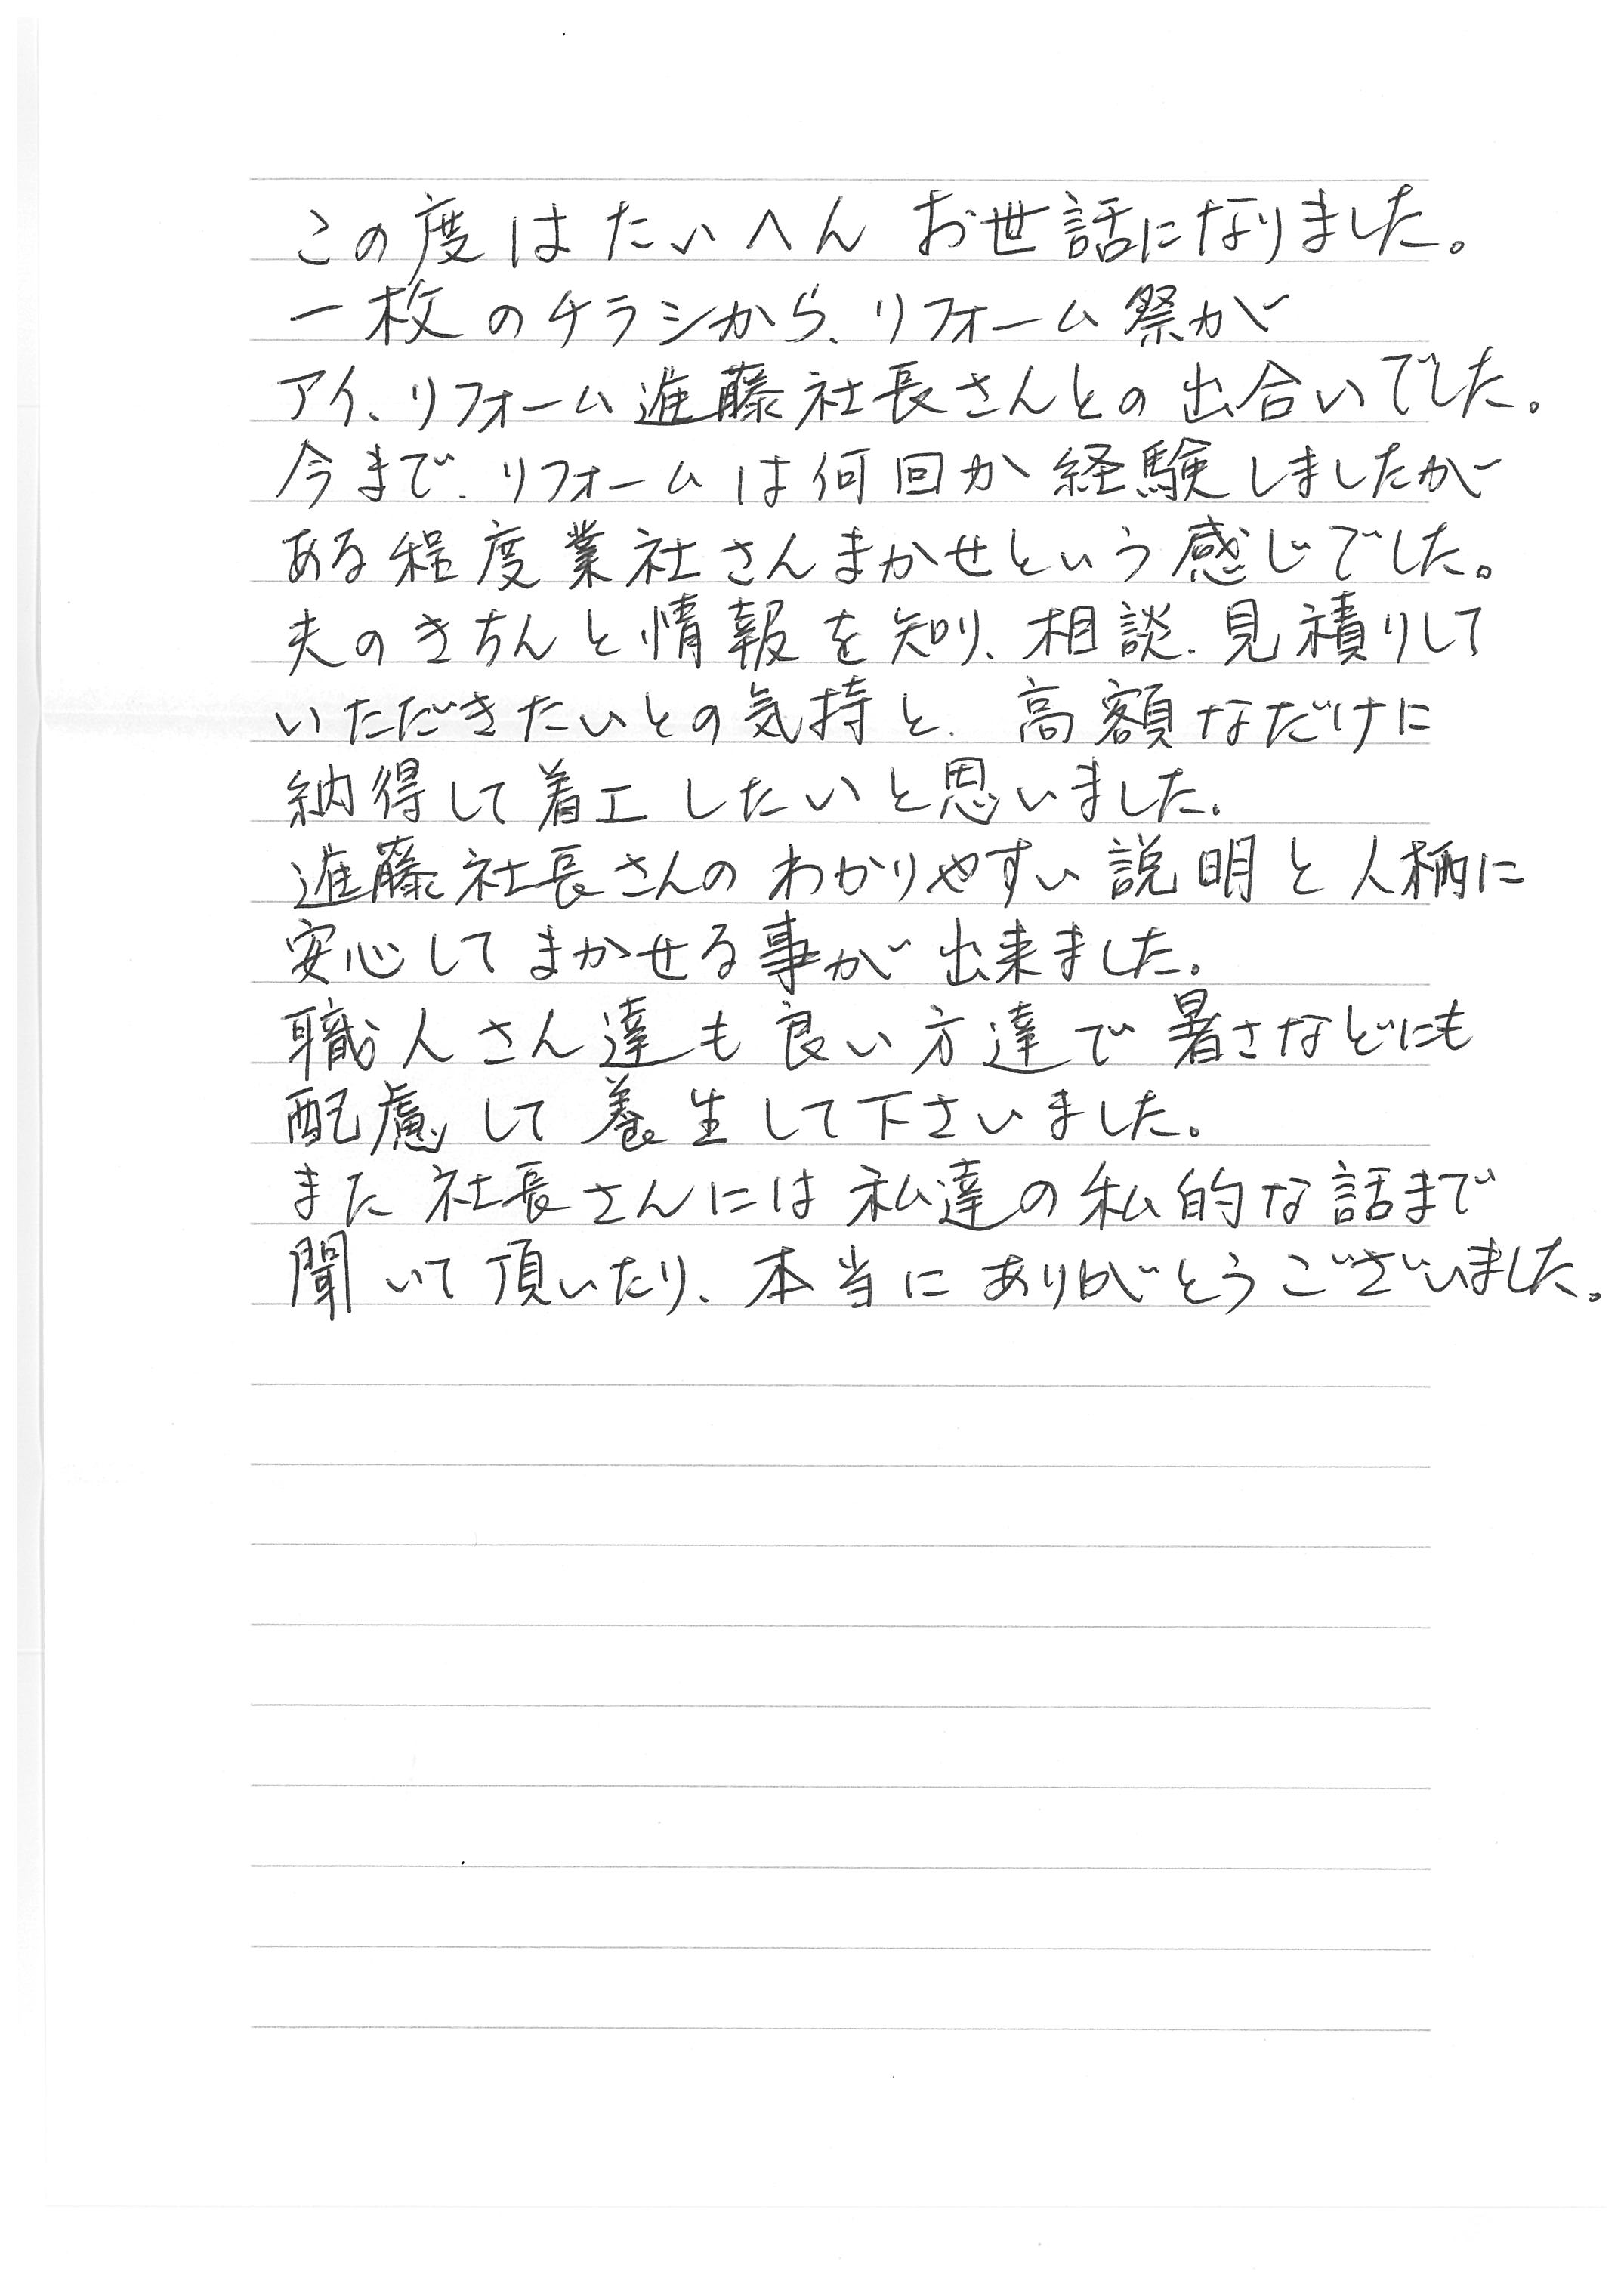 この度はたいへんお世話になりました。
一枚のチラシから、リフォーム祭が
アイ、リフォーム進藤社長さんとの出合いでした。
今まで、リフォームは何回か経験しましたが
ある程度業社さんまかせという感じでした。
夫のきちんと情報を知り、相談、見積りして
いただきたいとの気持と、高額なだけに
納得して着工したいと思いました。
進藤社長さんのわかりやすい説明と人柄に
安心してまかせる事が出来ました。
職人さん達も良い方達で暑さなどにも
配慮して養生して下さいました。
また社長さんには私達の私的な話まで
聞いて頂いたり、本当にありがとうございました。